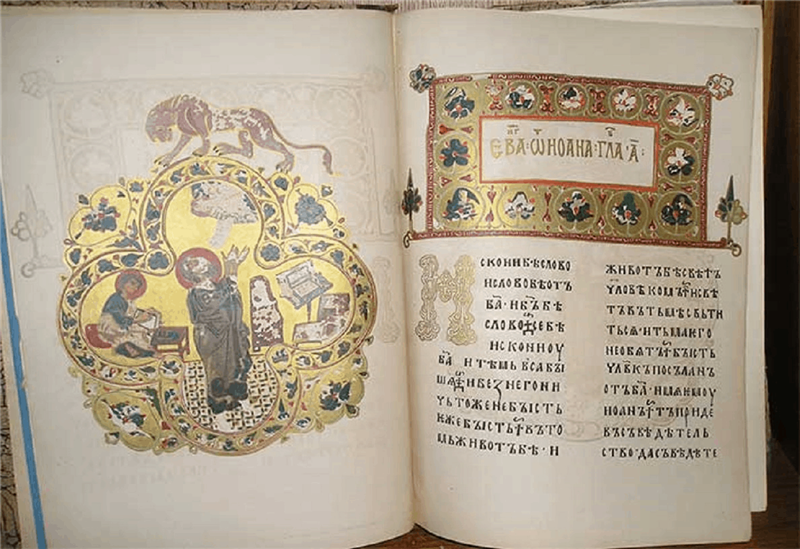 ЕВА҃·Ѿ ИОАНА·ГЛА·А҃:
Искони бѣ слово
и слово бѣ отъ
б҃а· и б҃ъ бѣ
слово· се бѣ
искони оу
б҃а и тѣмь вьса бы
шѧ· и без него ни
чьтоже не бысть·
еже бысть· въ то
мь животъ бѣ· и
животъ бѣ свѣтъ
чловѣкомъ· и свѣ
тъ въ тьмѣ свьти
тьсѧ· и тьма ѥго
не обѧтъ· бысть
чл҃вкъ посъланъ
отъ б҃а· имѧ ѥмоу
иоанъ· тъ приде
въ съвѣдѣтель
ство· да съвѣдѣте